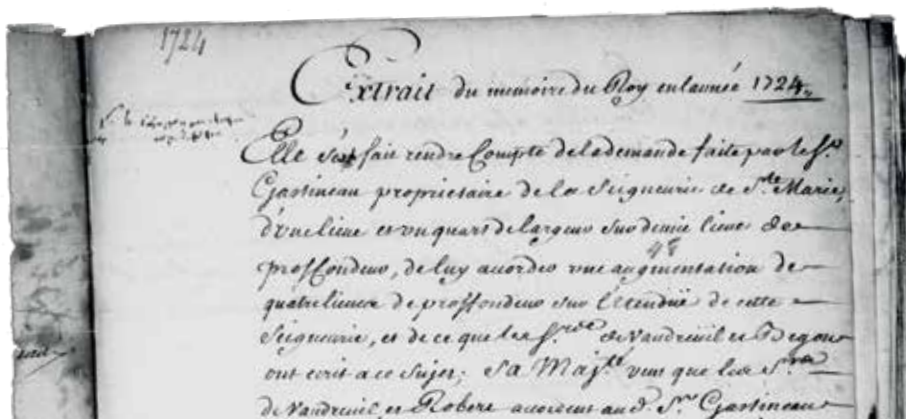 1724
Extrait du memoire du Roy en lannée 1724.
Elle s'est fait rendre Compte de la demande faite par le Sr.
Gastineau proprietaire de la Seigneurie de Ste. Marie,
d'une lieue et un quart de largeur sur demie lieue de
48
proffondeur, de luy accorder une augmentation de
quatre lieues de proffondeur sur l'etendüe de cette
Seigneurie, et de ce que les Srs. de Vaudreüil et Begon
ont ecrit a ce Sujet; Sa Maj.té veut que les Srs.
de Vaudreuil et Robert accordent aud. Sr. Gastineau